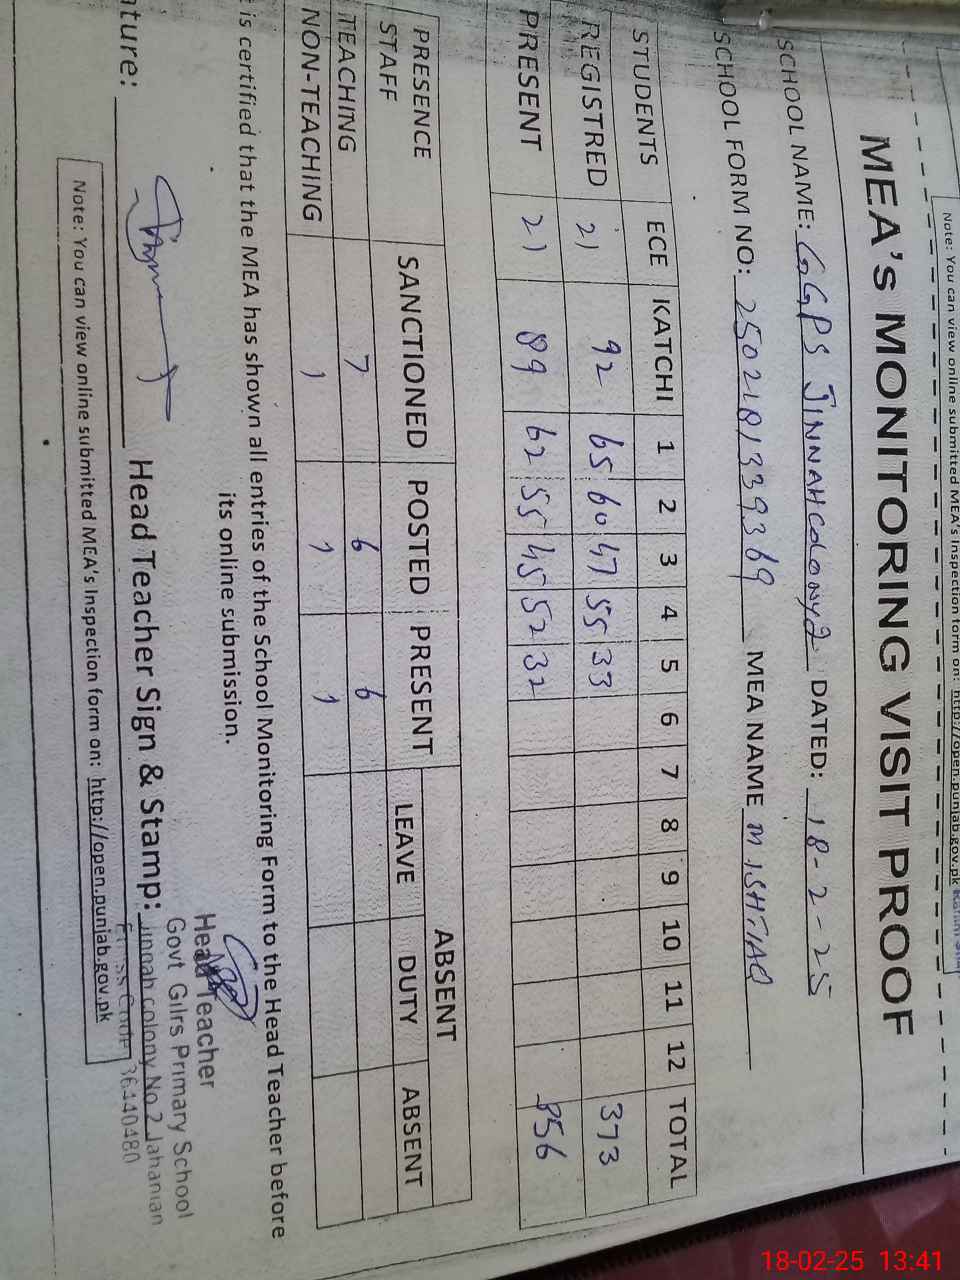 Note: You can view online submitted MEA's Inspection form on: http://open.punjab.gov.pk
MEA's MONITORING VISIT PROOF
SCHOOL NAME: GGPS JINNAH colony 2 DATED: 18-2-25
SCHOOL FORM NO: 2502181339369 MEA NAME M ISHTIAQ
STUDENTS ECE KATCHI 1 2 3 4 5 6 7 8 9 10 11 12 TOTAL
REGISTRED 21 92 65 60 47 55 33 373
PRESENT 21 89 62 55 45 52 32 356
PRESENCE STAFF SANCTIONED POSTED PRESENT ABSENT
LEAVE DUTY ABSENT
TEACHING 7 6 6
NON-TEACHING 1 1 1
is certified that the MEA has shown all entries of the School Monitoring Form to the Head Teacher before
its online submission.
ature: Head Teacher Sign & Stamp:
Head Teacher
Govt Gilrs Primary School
Jinnah colony No.2 Jahanian
Code 36440480
Note: You can view online submitted MEA's Inspection form on: http://open.punjab.gov.pk
18-02-25 13:41